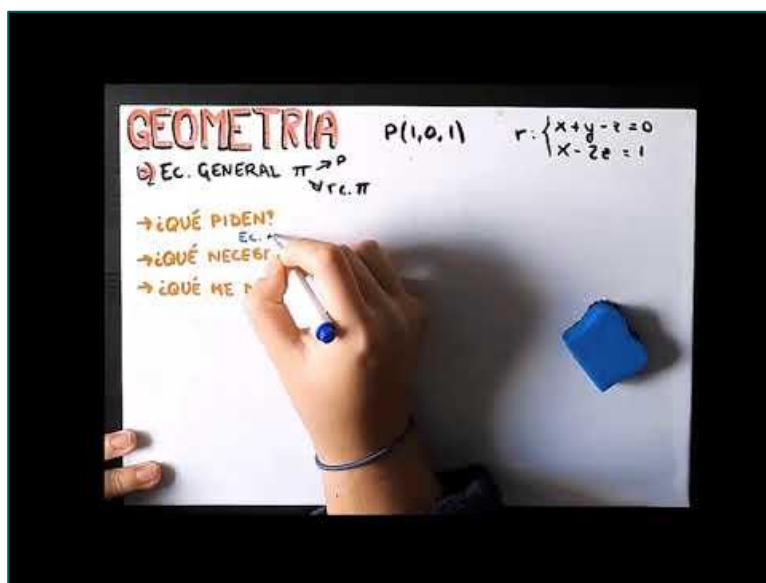 GEOMETRIA
P(1,0,1)
r: { x+y-z=0
x-2z=1
a) EC. GENERAL π → P
∀ r c. π
→ ¿QUÉ PIDEN?
EC.
→ ¿QUÉ
→ ¿QUÉ ME